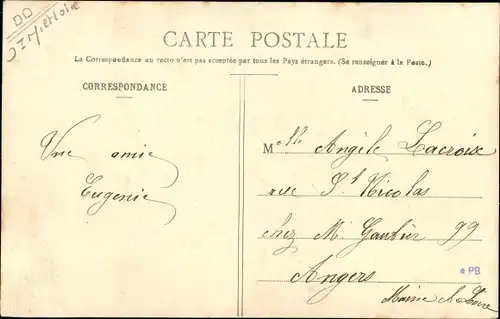 CARTE POSTALE
La Correspondance au recto n'est pas acceptée par tous les Pays étrangers. (Se renseigner à la Poste.)
CORRESPONDANCE
ADRESSE
Une amie
Eugenie
Mlle Angèle Lacroix
rue St Nicolas
chez M. Gautier 99
Angers
Maine & Loire
* PB